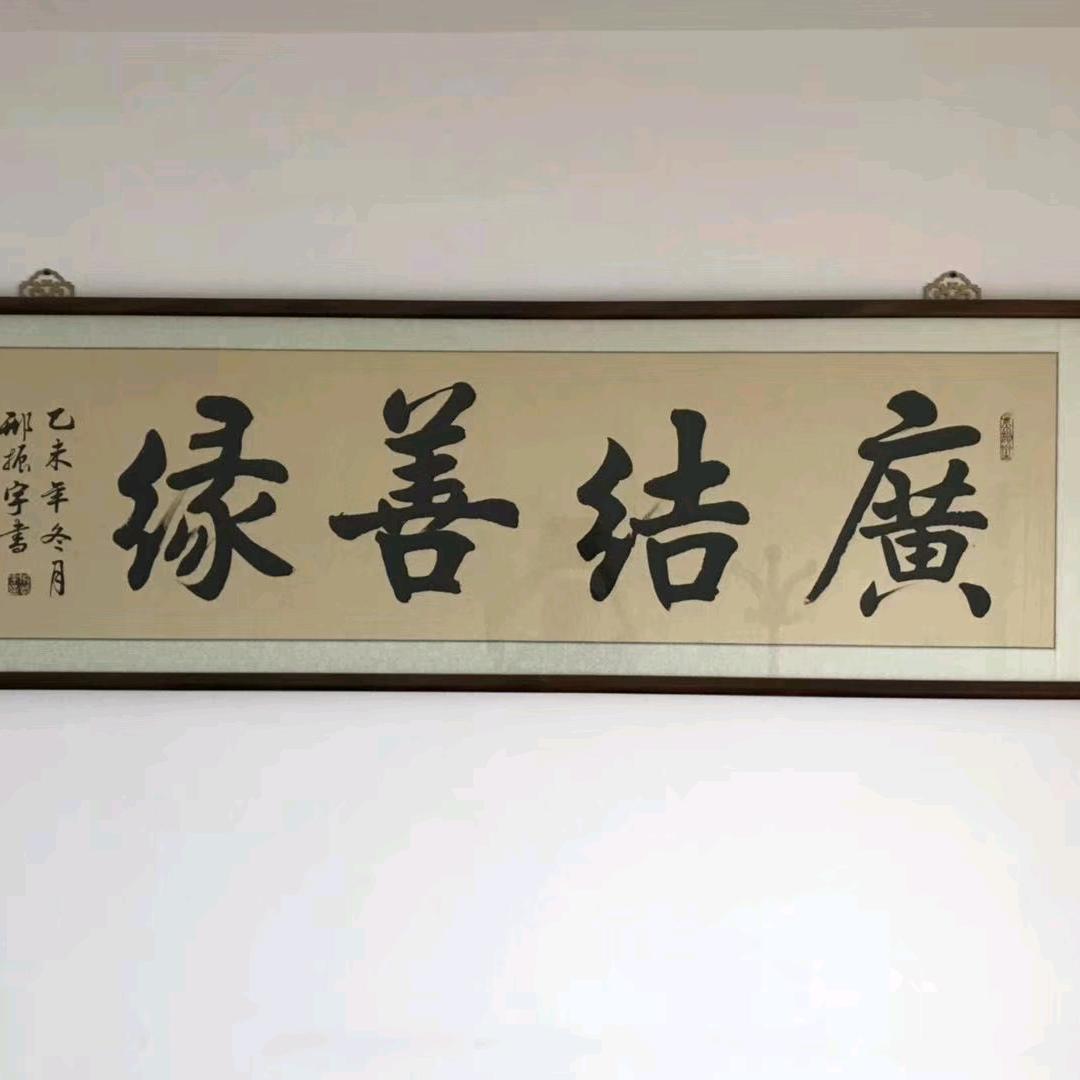 廣結善緣
乙未年冬月
邢振宇書